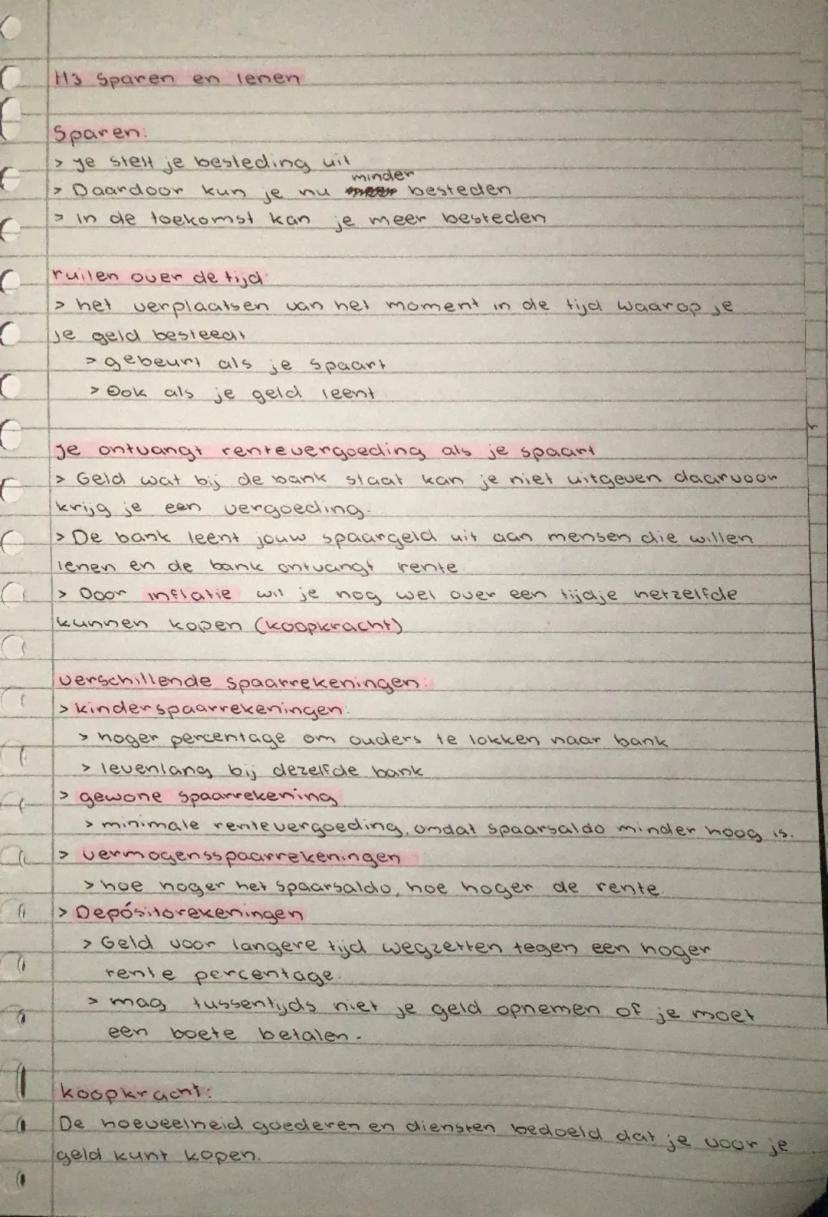 H3 Sparen en lenen
Sparen:
> je stelt je besteding uit
> Daardoor kun je nu minder besteden
> in de toekomst kan je meer besteden
ruilen over de tijd:
> het verplaatsen van het moment in de tijd waarop je
je geld besteedt
> gebeurt als je spaart
> Ook als je geld leent
Je ontvangt rentevergoeding als je spaart
> Geld wat bij de bank staat kan je niet uitgeven daarvoor
krijg je een vergoeding.
> De bank leent jouw spaargeld uit aan mensen die willen
lenen en de bank ontvangt rente
> Door inflatie wil je nog wel over een tijdje hetzelfde
kunnen kopen (koopkracht)
verschillende spaarrekeningen:
> kinderspaarrekeningen:
> hoger percentage om ouders te lokken naar bank
> levenlang bij dezelfde bank
> gewone spaarrekening
> minimale rentevergoeding, omdat spaarsaldo minder hoog is.
> vermogensspaarrekeningen
> hoe hoger het spaarsaldo, hoe hoger de rente.
> Depósitorekeningen
> Geld voor langere tijd wegzetten tegen een hoger
rente percentage.
> mag tussentijds niet je geld opnemen of je moet
een boete betalen.
koopkracht:
De hoeveelheid goederen en diensten bedoeld dat je voor je
geld kunt kopen.